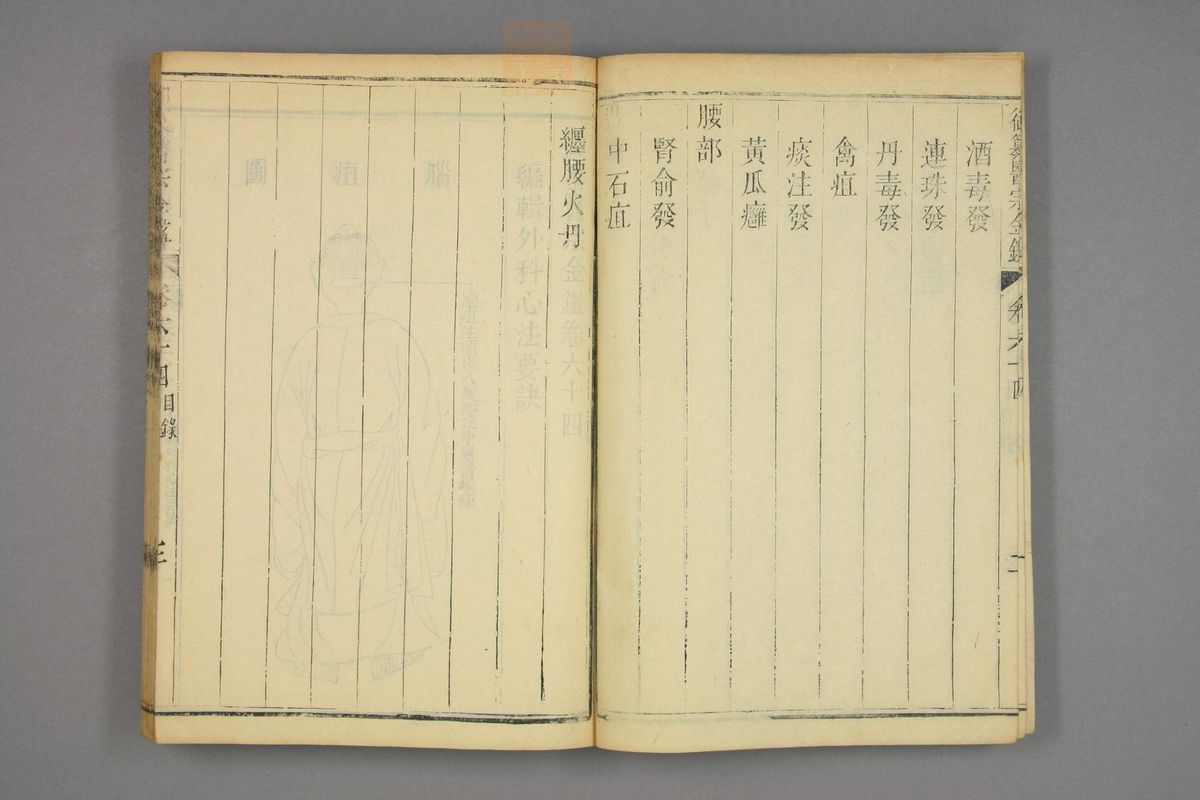 御纂醫宗金鑑 卷六十四 二
酒毒發
連珠發
丹毒發
禽疽
痰注發
黃瓜癰
腰部
腎俞發
中石疽
纏腰火丹
金鑑卷六十四
編輯外科心法要訣
腦疽圖
卷六十四目錄 三